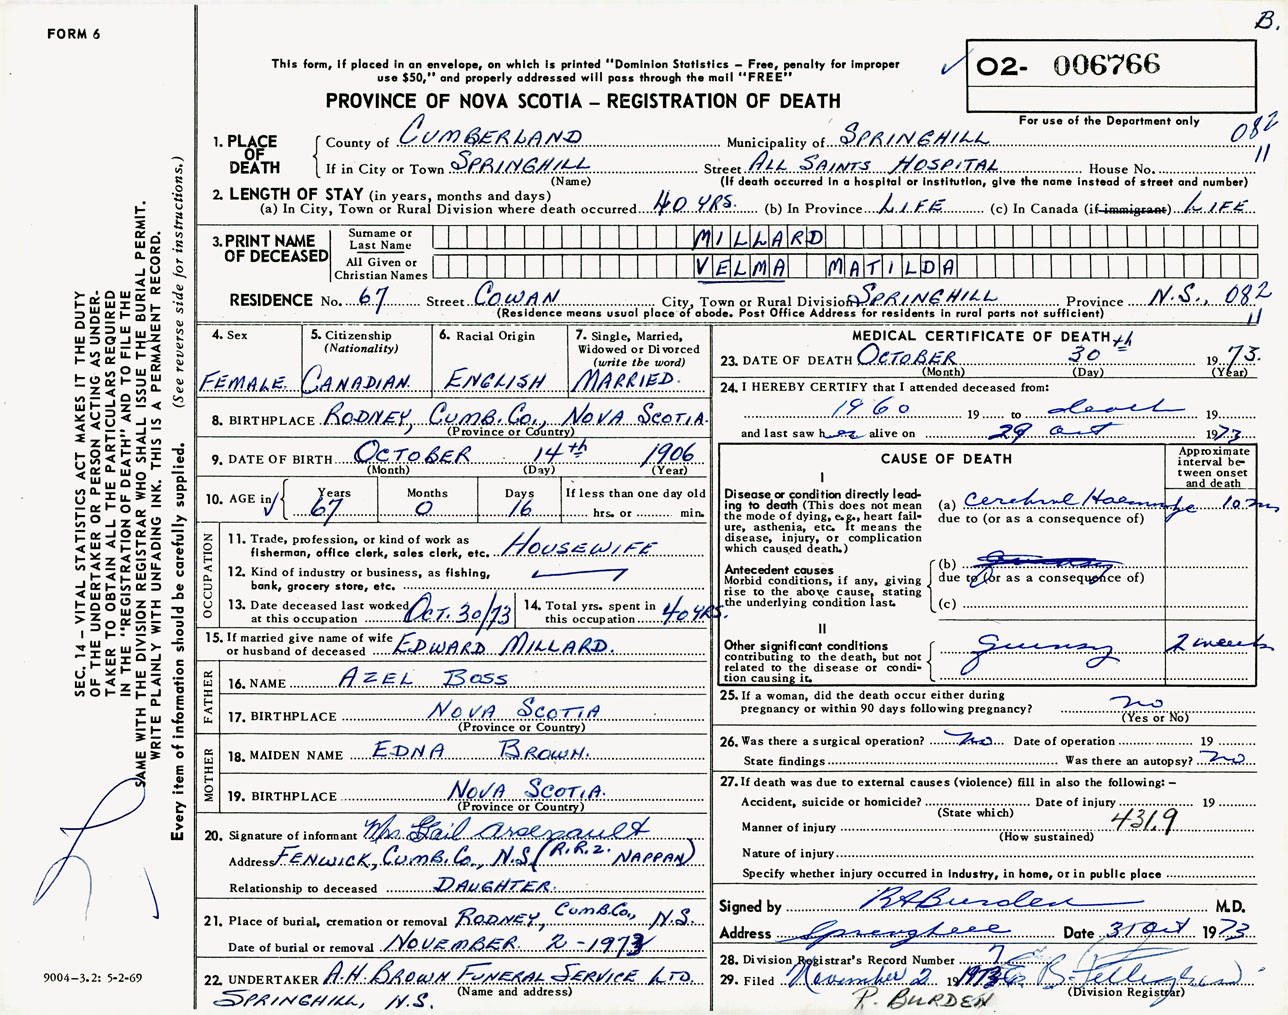 B.
FORM 6
This form, if placed in an envelope, on which is printed "Dominion Statistics – Free, penalty for improper
use $50," and properly addressed will pass through the mail "FREE"
O2- 006766
PROVINCE OF NOVA SCOTIA – REGISTRATION OF DEATH
For use of the Department only
082
11
1. PLACE OF DEATH
County of CUMBERLAND Municipality of SPRINGHILL
If in City or Town SPRINGHILL Street ALL SAINTS HOSPITAL House No.
(Name) (If death occurred in a hospital or institution, give the name instead of street and number)
2. LENGTH OF STAY (in years, months and days)
(a) In City, Town or Rural Division where death occurred 40 YRS. (b) In Province LIFE (c) In Canada (if immigrant) LIFE
3. PRINT NAME OF DECEASED
Surname or Last Name MILLARD
All Given or Christian Names VELMA MATILDA
RESIDENCE No. 67 Street COWAN City, Town or Rural Division SPRINGHILL Province N.S., 082
11
(Residence means usual place of abode. Post Office Address for residents in rural parts not sufficient)
SEC. 14 – VITAL STATISTICS ACT MAKES IT THE DUTY
OF THE UNDERTAKER OR PERSON ACTING AS UNDER-
TAKER TO OBTAIN ALL THE PARTICULARS REQUIRED
IN THE "REGISTRATION OF DEATH" AND TO FILE THE
SAME WITH THE DIVISION REGISTRAR WHO SHALL ISSUE THE BURIAL PERMIT.
WRITE PLAINLY WITH UNFADING INK. THIS IS A PERMANENT RECORD.
Every item of information should be carefully supplied. (See reverse side for instructions.)
4. Sex
FEMALE
5. Citizenship
(Nationality)
CANADIAN
6. Racial Origin
ENGLISH
7. Single, Married,
Widowed or Divorced
(write the word)
MARRIED.
8. BIRTHPLACE RODNEY, CUMB. CO., NOVA SCOTIA.
(Province or Country)
9. DATE OF BIRTH OCTOBER 14th 1906
(Month) (Day) (Year)
10. AGE in
Years Months Days If less than one day old
67 0 16 hrs. or min.
OCCUPATION
11. Trade, profession, or kind of work as
fisherman, office clerk, sales clerk, etc. HOUSEWIFE
12. Kind of industry or business, as fishing,
bank, grocery store, etc.
13. Date deceased last worked
at this occupation OCT. 30/73
14. Total yrs. spent in
this occupation 40 YRS.
15. If married give name of wife
or husband of deceased EDWARD MILLARD.
FATHER
16. NAME AZEL BOSS
17. BIRTHPLACE NOVA SCOTIA
(Province or Country)
MOTHER
18. MAIDEN NAME EDNA BROWN.
19. BIRTHPLACE NOVA SCOTIA.
(Province or Country)
20. Signature of informant Mrs. Gail Arsenault
Address FENWICK, CUMB. CO., N.S. (R.R.2. NAPPAN)
Relationship to deceased DAUGHTER.
21. Place of burial, cremation or removal RODNEY, CUMB. CO., N.S.
Date of burial or removal NOVEMBER 2 - 1973
22. UNDERTAKER A.H. BROWN FUNERAL SERVICE LTD.
(Name and address)
SPRINGHILL, N.S.
9004–3.2: 5-2-69
MEDICAL CERTIFICATE OF DEATH
23. DATE OF DEATH OCTOBER 30th 1973.
(Month) (Day) (Year)
24. I HEREBY CERTIFY that I attended deceased from:
1960 19 to death 19
and last saw her alive on 29 Oct 1973
CAUSE OF DEATH
Approximate
interval be-
tween onset
and death
I
Disease or condition directly lead-
ing to death (This does not mean
the mode of dying, e.g., heart fail-
ure, asthenia, etc. It means the
disease, injury, or complication
which caused death.)
(a) Cerebral Haemorrhage
due to (or as a consequence of)
Antecedent causes
Morbid conditions, if any, giving
rise to the above cause, stating
the underlying condition last.
(b)
due to (or as a consequence of)
(c)
II
Other significant conditions
contributing to the death, but not
related to the disease or condi-
tion causing it.
Quinsy 2 weeks
25. If a woman, did the death occur either during
pregnancy or within 90 days following pregnancy? no
(Yes or No)
26. Was there a surgical operation? no Date of operation 19
State findings Was there an autopsy? no
27. If death was due to external causes (violence) fill in also the following: –
Accident, suicide or homicide? Date of injury 19
(State which)
Manner of injury 431.9
(How sustained)
Nature of injury
Specify whether injury occurred in industry, in home, or in public place
Signed by R A Burden M.D.
Address Springhill Date 31 Oct 1973
28. Division Registrar's Record Number
29. Filed November 2 1973
(Division Registrar)
R. BURDEN